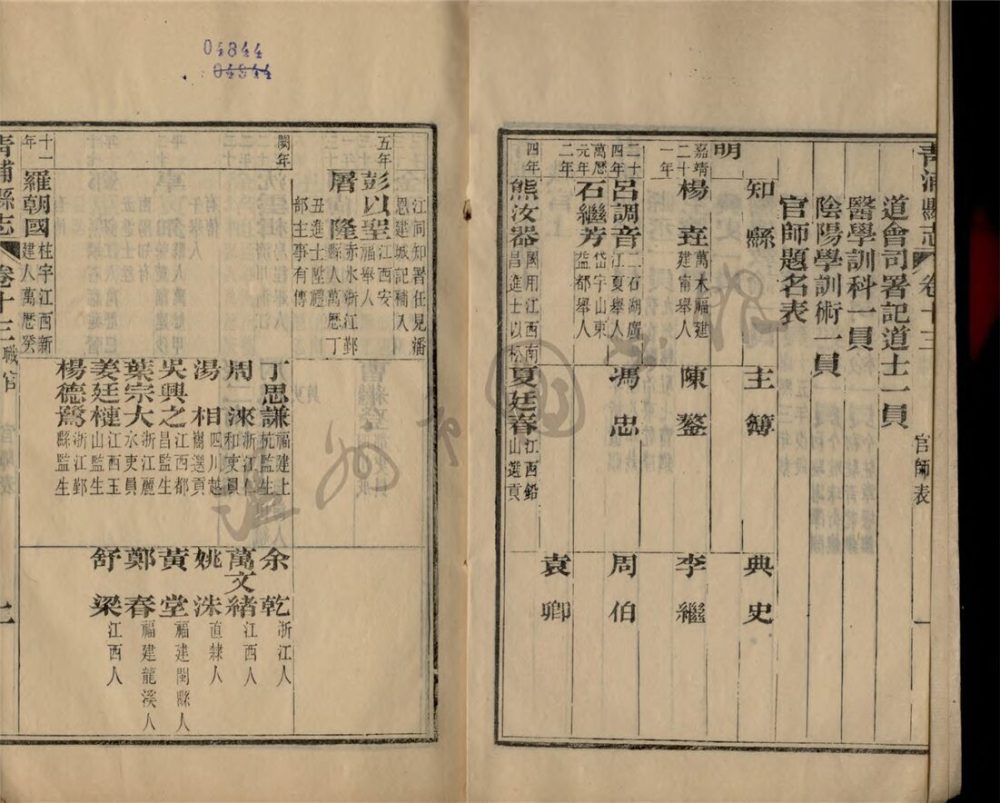 04844
04844
青浦縣志 卷十三 官師表 一
道會司署記道士一員
醫學訓科一員
陰陽學訓術一員
官師題名表
知縣 主簿 典史
明
嘉靖二十一年 楊 萬木福建建甯舉人 陳鏊 李繼
二十四年 呂調音 二石湖廣江夏舉人 馮忠 周伯
萬歷元年 石繼芳 岱宇山東益都舉人
二年 袁卿
四年 熊汝器 國用江西南昌進士以松 夏廷春 江西鉛山選貢
江同知署任見潘恩建城記補入
五年 彭以聖 江西安福舉人
屠隆 赤水浙江鄞縣人萬歷丁丑進士陞禮部主事有傳
閏年
丁思謙 福建上杭監生 余乾 浙江人
周淶 浙江仁和吏員 萬文緒 江西人
湯相 四川越嶲選貢 姚洙 直隸人
吳興之 江西都昌監生 黃堂 福建閩縣人
葉宗大 浙江麗水吏員 鄭春 福建龍溪人
姜廷槤 江西玉山監生 舒梁 江西人
楊德驁 浙江鄞縣監生
十一年 羅朝國 柱宇江西新建人萬歷癸
青浦縣志 卷十三 職官